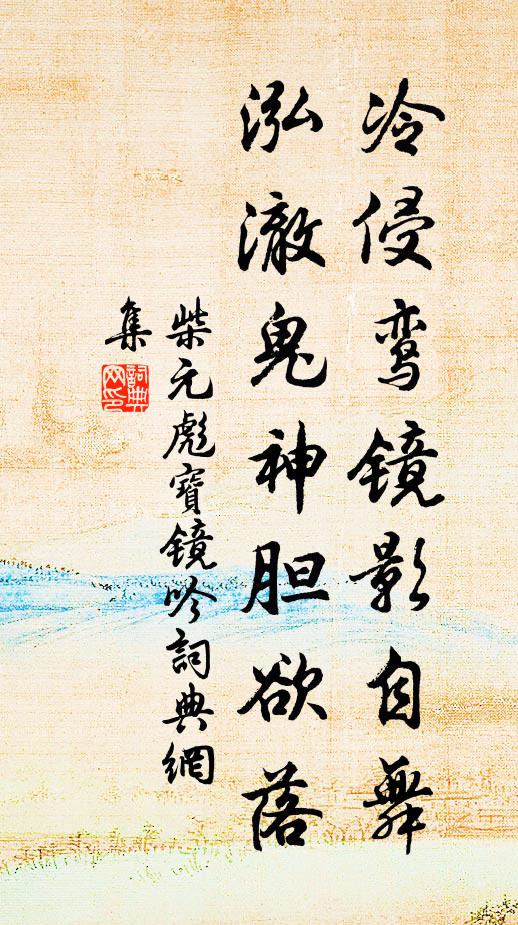 冷侵鸾镜影自舞
泓澈鬼神胆欲落
柴元彪寶镜吟詞典網
集
詞典网印